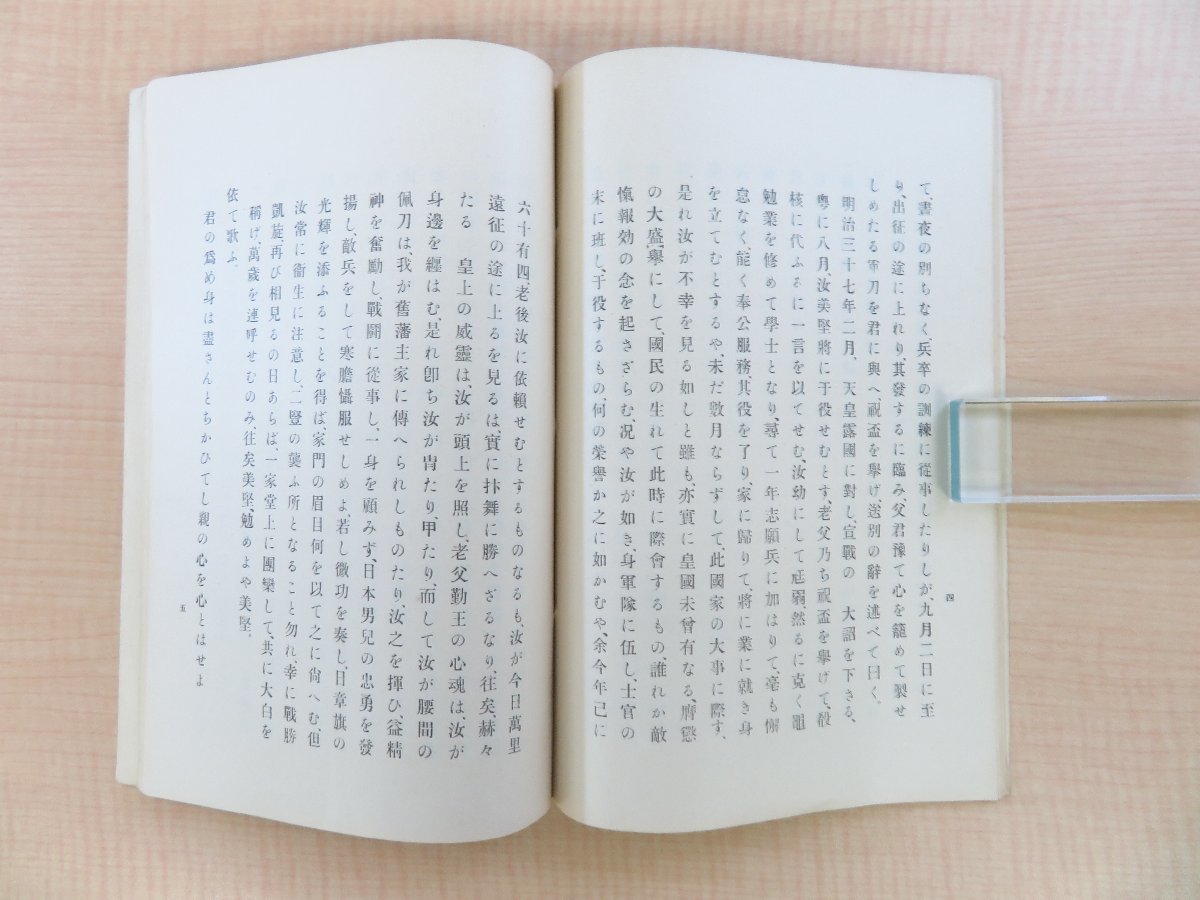 て、晝夜の別ちなく、兵卒の訓練に從事したりしが、九月二日に至
り、出征の途に上れり、其發するに臨み、父君豫て心を籠めて製せ
しめたる軍刀を君に與へ、祝盃を擧げ、送別の辭を述べて曰く。
明治三十七年二月、天皇露國に對し、宣戰の 大詔を下さる、
粤に八月、汝美堅將に于役せむとす、老父乃ち祝盃を擧げて、殽
核に代ふるに一言を以てせむ、汝幼にして尫弱、然るに克く黽
勉業を修めて學士となり、尋て一年志願兵に加はりて、毫も懈
怠なく、能く奉公服務、其役を了り、家に歸りて、將に業に就き身
を立てむとするや、未だ數月ならずして、此國家の大事に際す、
是れ汝が不幸を見る如しと雖も、亦實に皇國未曾有なる、膺懲
の大盛擧にして、國民の生れて此時に際會するもの、誰れか敵
愾報効の念を起さざらむ、况や汝が如き、身軍隊に伍し、士官の
末に班し、于役するもの、何の榮譽か之に如かむや、余今年已に
四
六十有四、老後汝に依賴せむとするものなるも、汝が今日萬里
遠征の途に上るを見るは、實に抃舞に勝へざるなり、往矣、赫々
たる 皇上の威靈は、汝が頭上を照し、老父勤王の心魂は、汝が
身邊を纒はむ、是れ卽ち汝が冑たり、甲たり、而して汝が腰間の
佩刀は、我が舊藩主家に傳へられしものたり、汝之を揮ひ、益精
神を奮勵し、戰鬪に從事し、一身を顧みず、日本男兒の忠勇を發
揚し、敵兵をして寒膽懾服せしめよ、若し微功を奏し、日章旗の
光輝を添ふることを得ば、家門の眉目何を以て之に尙へむ、但
汝常に衞生に注意し、二豎の襲ふ所となること勿れ、幸に戰勝
凱旋、再び相見るの日あらば、一家堂上に團欒して、共に大白を
稱げ、萬歲を連呼せむのみ、往矣美堅、勉めよや美堅。
依て歌ふ。
君の爲め身は盡さんとちかひてし親の心を心とはせよ
五